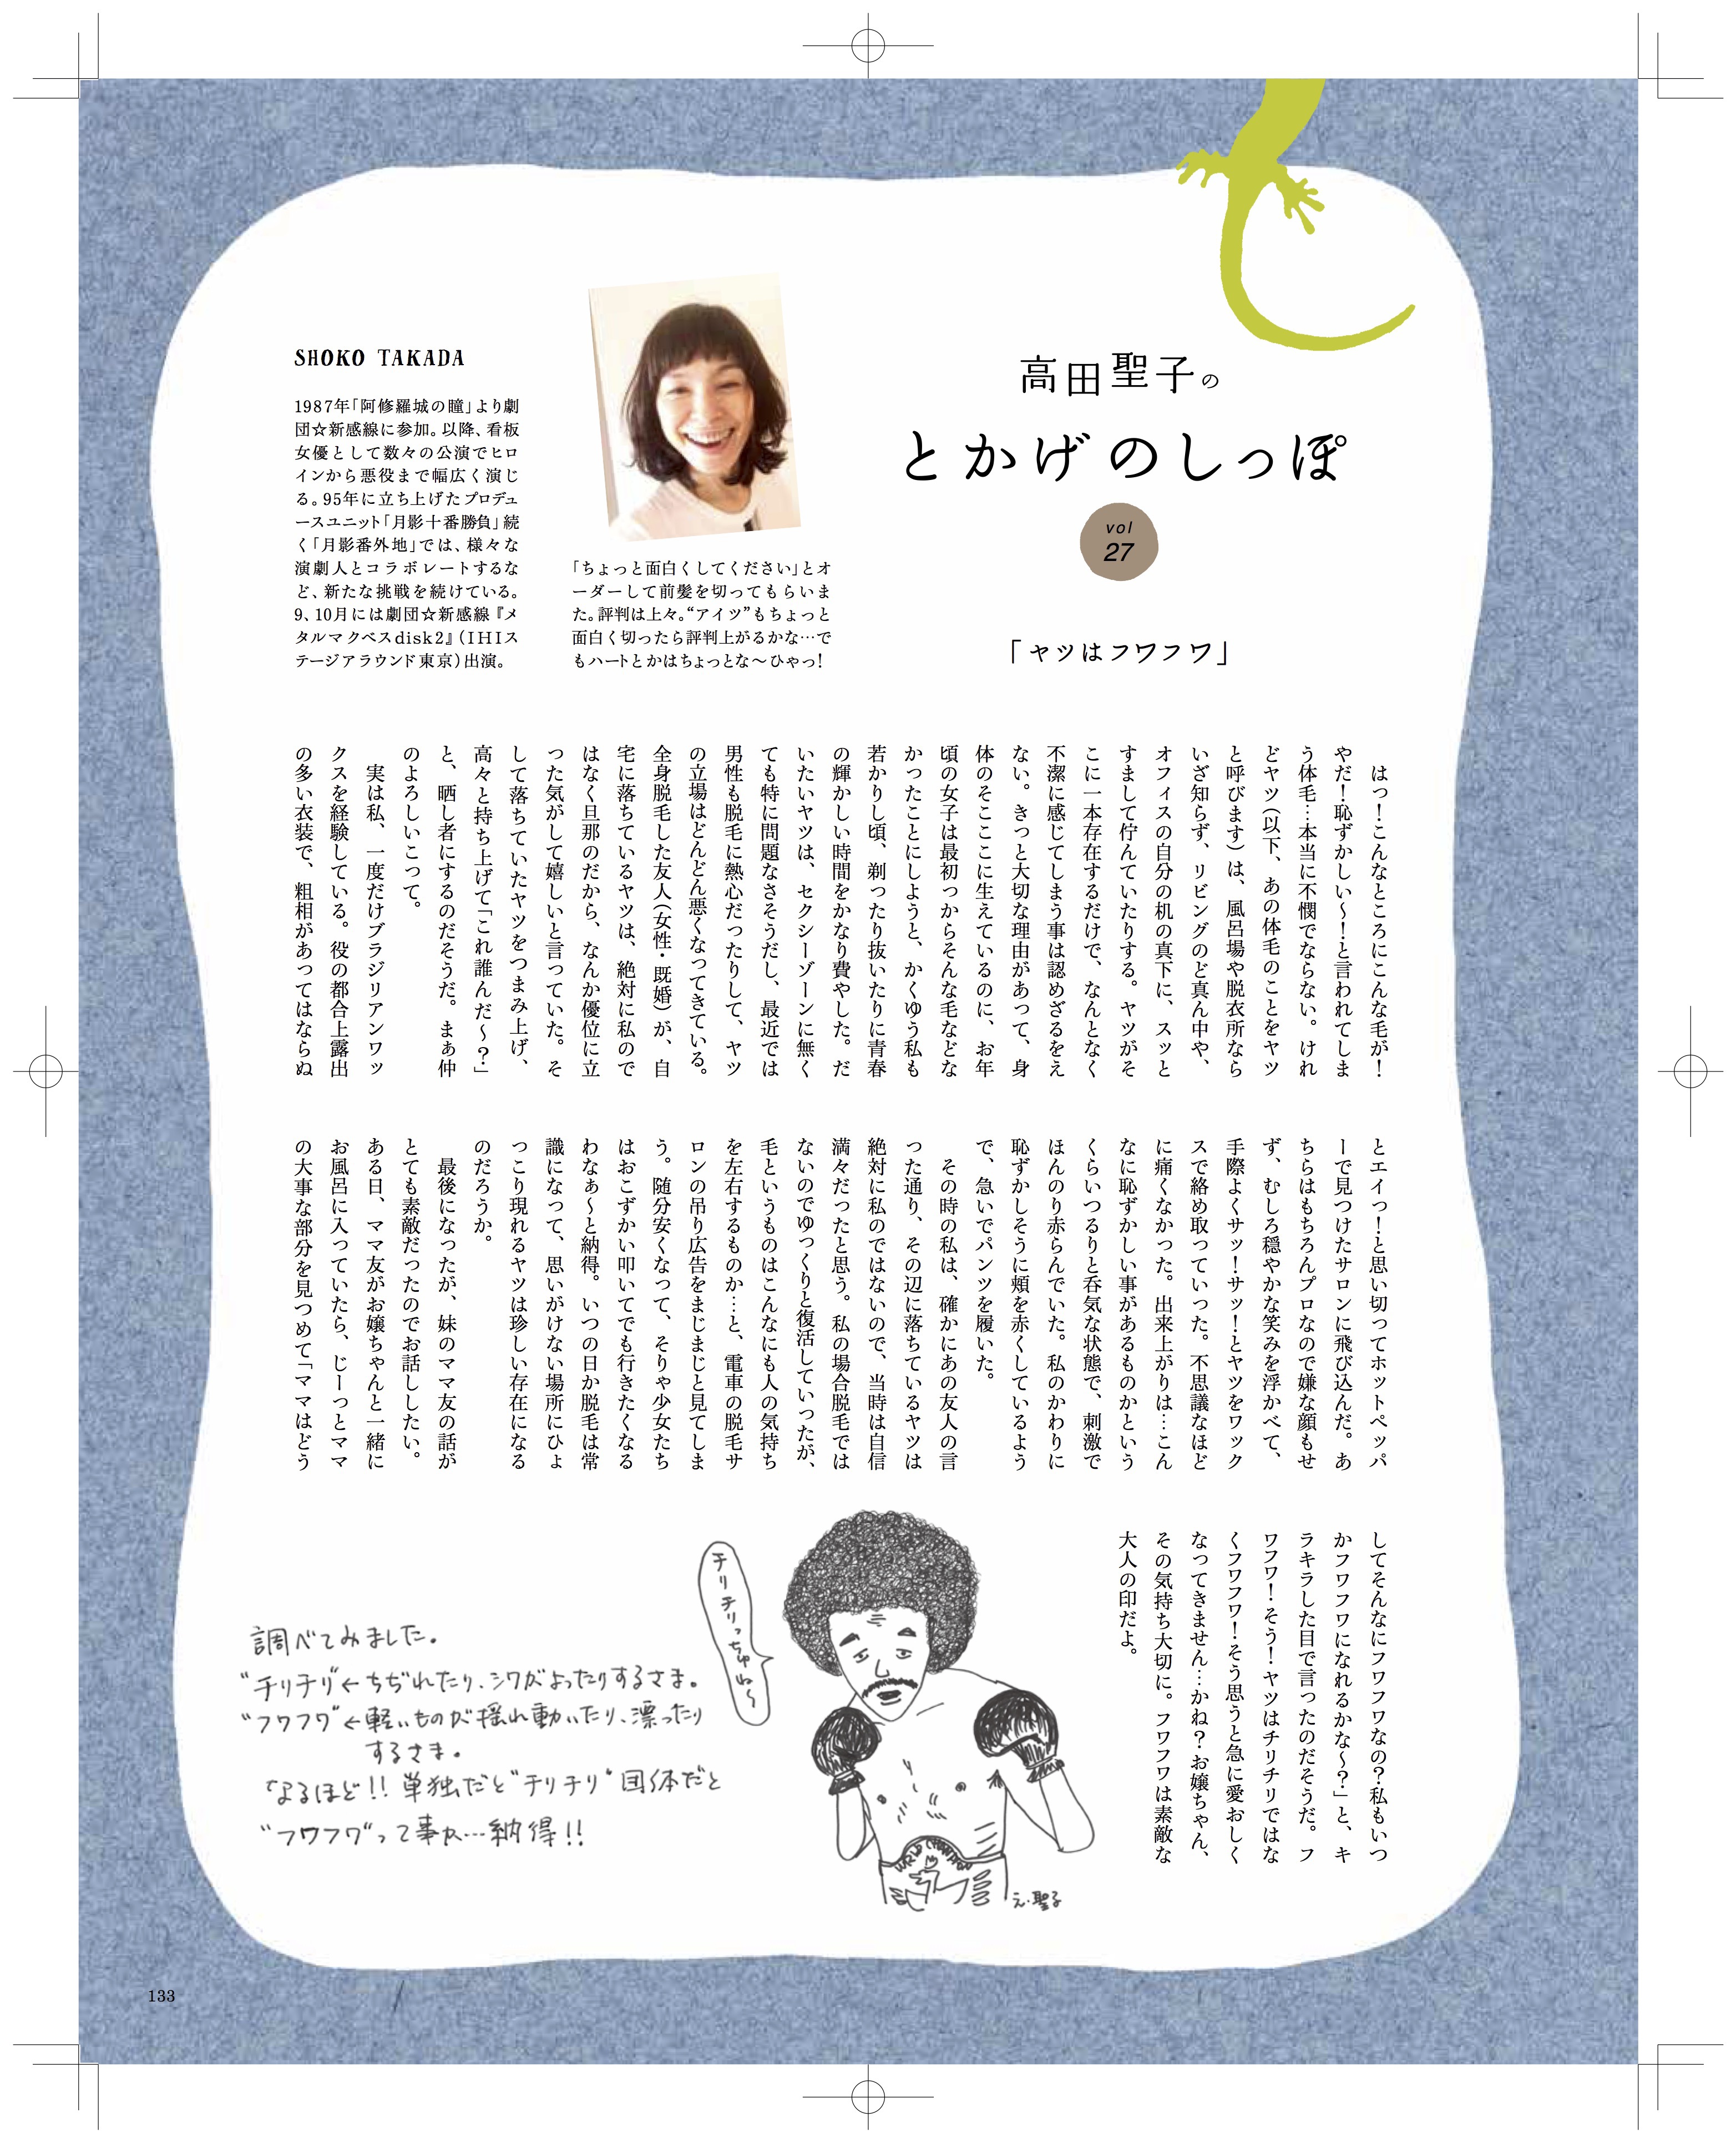 高田聖子の
とかげのしっぽ
vol
27
「ヤツはフワフワ」
SHOKO TAKADA
1987年「阿修羅城の瞳」より劇
団☆新感線に参加。以降、看板
女優として数々の公演でヒロ
インから悪役まで幅広く演じ
る。95年に立ち上げたプロデュ
ースユニット「月影十番勝負」続
く「月影番外地」では、様々な
演劇人とコラボレートするな
ど、新たな挑戦を続けている。
9、10月には劇団☆新感線『メ
タルマクベスdisk2』（IHIス
テージアラウンド東京）出演。
「ちょっと面白くしてください」とオ
ーダーして前髪を切ってもらいま
た。評判は上々。“アイツ”もちょっと
面白く切ったら評判上がるかな…で
もハートとかはちょっとな〜ひゃっ！
はっ！こんなところにこんな毛が！
やだ！恥ずかしい〜！と言われてしま
う体毛…本当に不憫でならない。けれ
どヤツ（以下、あの体毛のことをヤツ
と呼びます）は、風呂場や脱衣所なら
いざ知らず、リビングのど真ん中や、
オフィスの自分の机の真下に、スッと
すまして佇んでいたりする。ヤツがそ
こに一本存在するだけで、なんとなく
不潔に感じてしまう事は認めざるをえ
ない。きっと大切な理由があって、身
体のそこここに生えているのに、お年
頃の女子は最初っからそんな毛などな
かったことにしようと、かくゆう私も
若かりし頃、剃ったり抜いたりに青春
の輝かしい時間をかなり費やした。だ
いたいヤツは、セクシーゾーンに無く
ても特に問題なさそうだし、最近では
男性も脱毛に熱心だったりして、ヤツ
の立場はどんどん悪くなってきている。
全身脱毛した友人（女性・既婚）が、自
宅に落ちているヤツは、絶対に私ので
はなく旦那のだから、なんか優位に立
った気がして嬉しいと言っていた。そ
して落ちていたヤツをつまみ上げ、
高々と持ち上げて「これ誰んだ〜？」
と、晒し者にするのだそうだ。まぁ仲
のよろしいこって。
実は私、一度だけブラジリアンワッ
クスを経験している。役の都合上露出
の多い衣装で、粗相があってはならぬ
とエイっ！と思い切ってホットペッパ
ーで見つけたサロンに飛び込んだ。あ
ちらはもちろんプロなので嫌な顔もせ
ず、むしろ穏やかな笑みを浮かべて、
手際よくサッ！サッ！とヤツをワック
スで絡め取っていった。不思議なほど
に痛くなかった。出来上がりは…こん
なに恥ずかしい事があるものかという
くらいつるりと呑気な状態で、刺激で
ほんのり赤らんでいた。私のかわりに
恥ずかしそうに頬を赤くしているよう
で、急いでパンツを履いた。
その時の私は、確かにあの友人の言
った通り、その辺に落ちているヤツは
絶対に私のではないので、当時は自信
満々だったと思う。私の場合脱毛では
ないのでゆっくりと復活していったが、
毛というものはこんなにも人の気持ち
を左右するものか…と、電車の脱毛サ
ロンの吊り広告をまじまじと見てしま
う。随分安くなって、そりゃ少女たち
はおこずかい叩いてでも行きたくなる
わなぁ〜と納得。いつの日か脱毛は常
識になって、思いがけない場所にひょ
っこり現れるヤツは珍しい存在になる
のだろうか。
最後になったが、妹のママ友の話が
とても素敵だったのでお話ししたい。
ある日、ママ友がお嬢ちゃんと一緒に
お風呂に入っていたら、じーっとママ
の大事な部分を見つめて「ママはどう
してそんなにフワフワなの？私もいつ
かフワフワになれるかな〜？」と、キ
ラキラした目で言ったのだそうだ。フ
ワフワ！そう！ヤツはチリチリではな
くフワフワ！そう思うと急に愛おしく
なってきません…かね？お嬢ちゃん、
その気持ち大切に。フワフワは素敵な
大人の印だよ。
チリチリっちゅね〜
WORLD CHAMPION
え・聖子
調べてみました。
“チリチリ”←ちぢれたり、シワがよったりするさま。
“フワフワ”←軽いものが揺れ動いたり、漂ったり
するさま。
なるほど!! 単独だと“チリチリ”団体だと
“フワフワ”って事か…納得!!
133